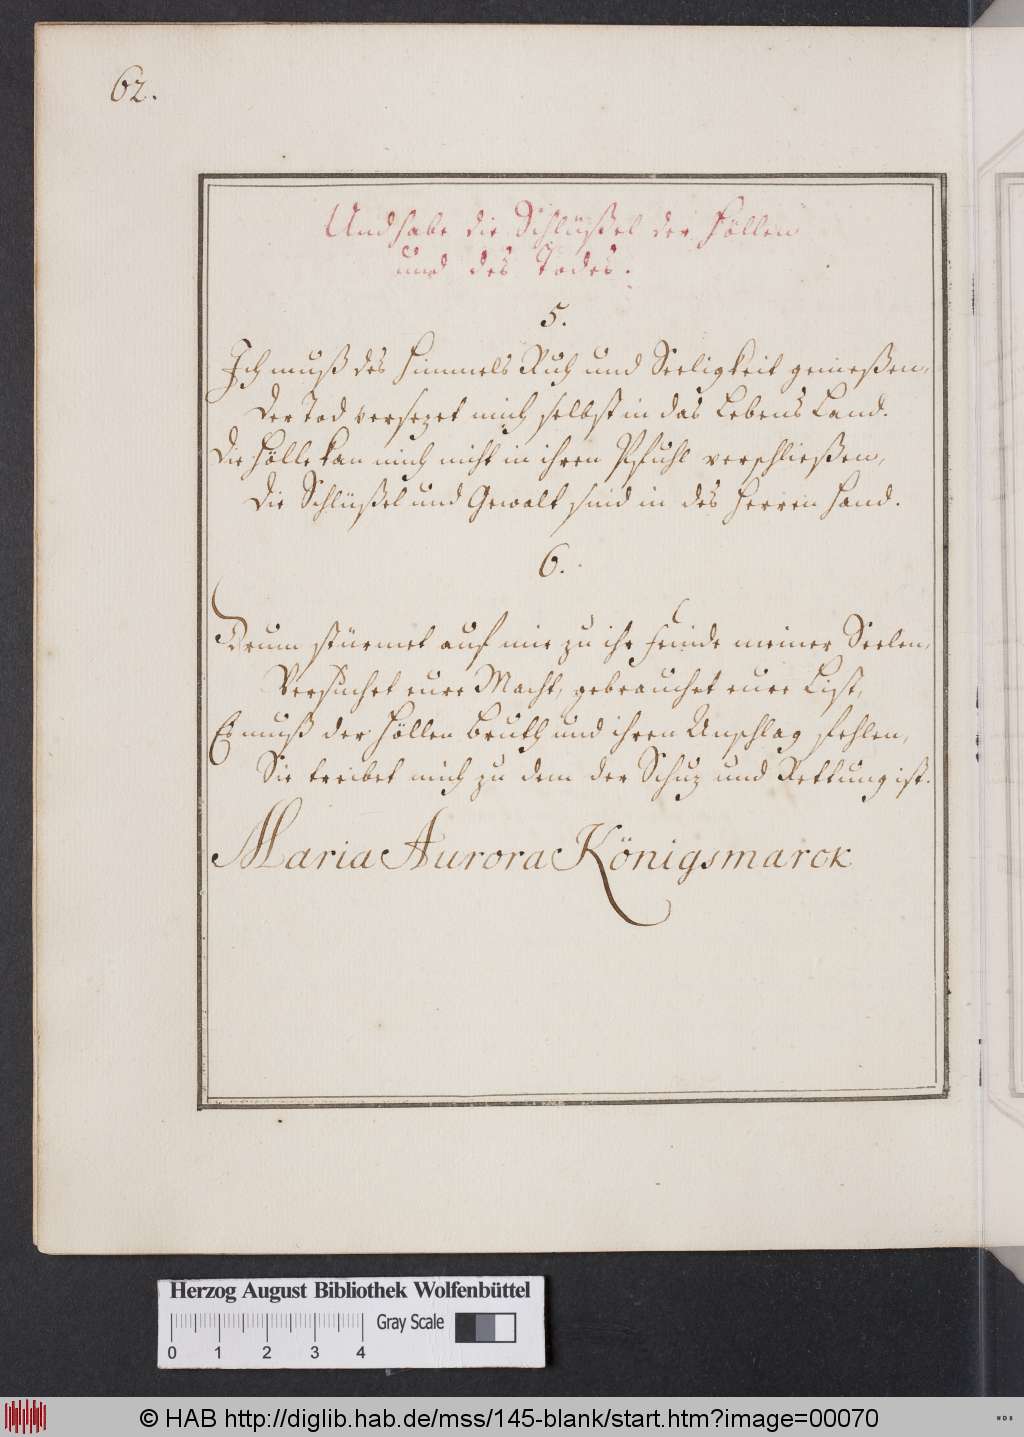 62.
Und habe die Schlüßel der Höllen
und des Todes.
5.
Ich muß des Himmels Ruh und Seeligkeit genießen,
Der Tod versezet mich selbst in das Lebens Land.
Die Hölle kan mich nicht in ihren Pfuhl verschließen,
Die Schlüßel und Gewalt sind in des Herren Hand.
6.
Drum stürmet auf mir zu ihr Feinde meiner Seelen,
Versuchet eure Macht, gebrauchet eure List,
Es muß der Höllen Bruth und ihren Anschlag fehlen,
Sie treibet mich zu dem der Schuz und Rettung ist.
Maria Aurora Königsmarck
Herzog August Bibliothek Wolfenbüttel
Gray Scale
0 1 2 3 4
© HAB http://diglib.hab.de/mss/145-blank/start.htm?image=00070